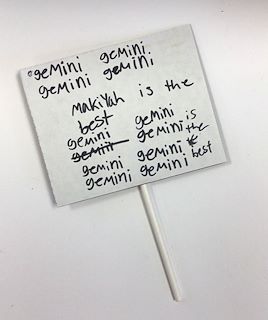 gemini gemini
gemini gemini
makiyah is the
best gemini is
gemini gemini the
gemini gemini best
gemini gemini
gemini